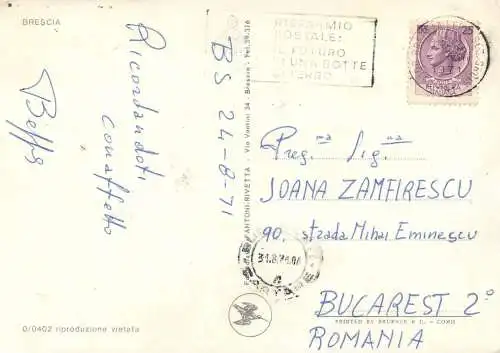 BRESCIA
Ricordandoti
con affetto
Beppe
BS 24-8-71
RISPARMIO
POSTALE:
IL FUTURO
DI UNA BOTTE
25
Preg.ma Sig.na
JOANA ZAMFIRESCU
90. strada Mihai Eminescu
BUCAREST 2º
ROMANIA
ANTONI-RIVETTA - Via Vantini 34 - Brescia - Tel. 59.316
31.8.71
0/0402 riproduzione vietata
PRINTED BY
COMO